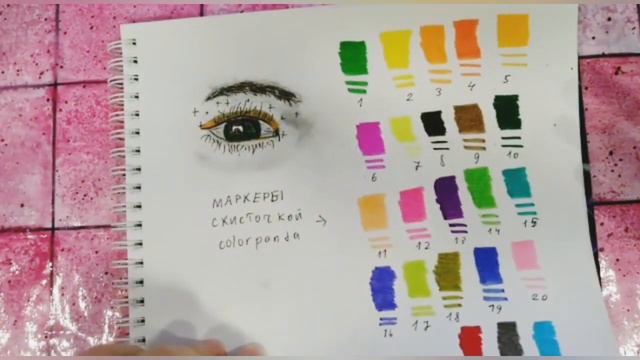 МАРКЕРЫ
С КИСТОЧКОЙ
colorpanda
1 2 3 4 5
6 7 8 9 10
11 12 13 14 15
16 17 18 19 20